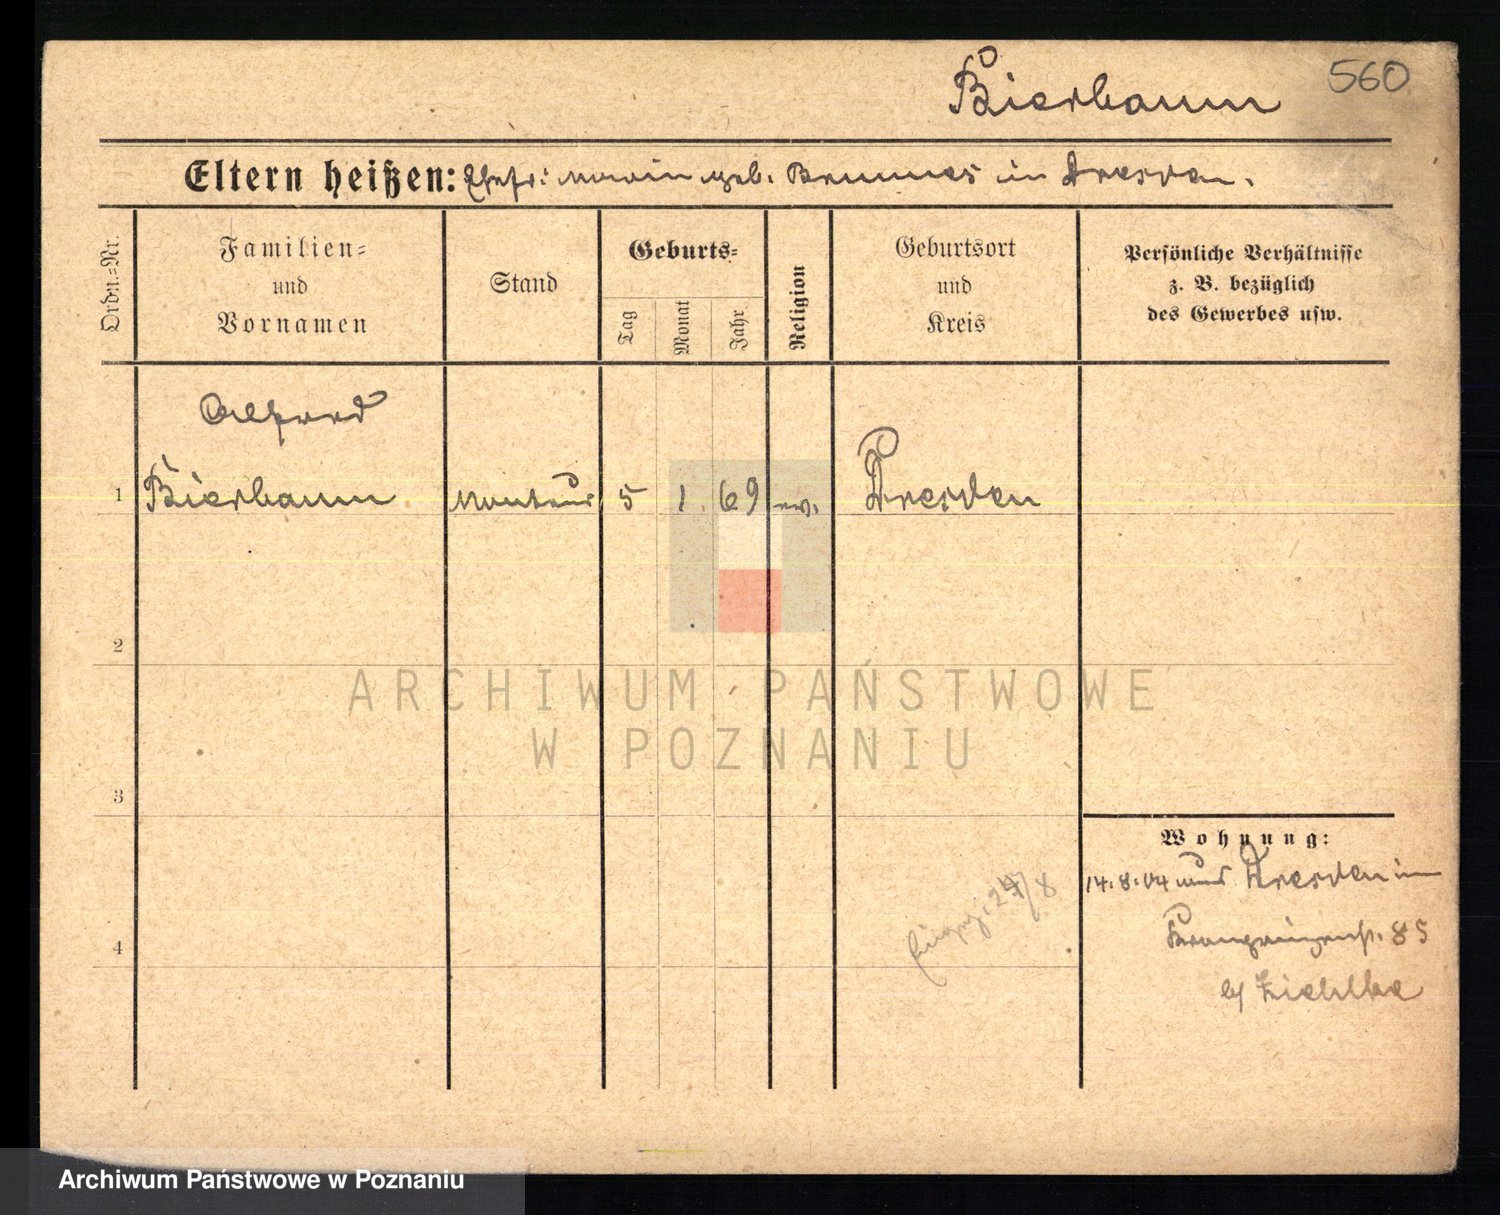 560
Bierbaum
Eltern heißen: Ehefr: Marie geb. in Dresden.
Ordn.=Nr.
Familien=
und
Vornamen
Stand
Geburts=
Tag
Monat
Jahr
Religion
Geburtsort
und
Kreis
Persönliche Verhältnisse
z. B. bezüglich
des Gewerbes usw.
Alfred
1 Bierbaum Monteur 5 1. 69 ev. Dresden
2
ARCHIWUM PAŃSTWOWE
W POZNANIU
3
Wohnung:
14.8.04 aus Dresden in
85
24/8
4
Archiwum Państwowe w Poznaniu